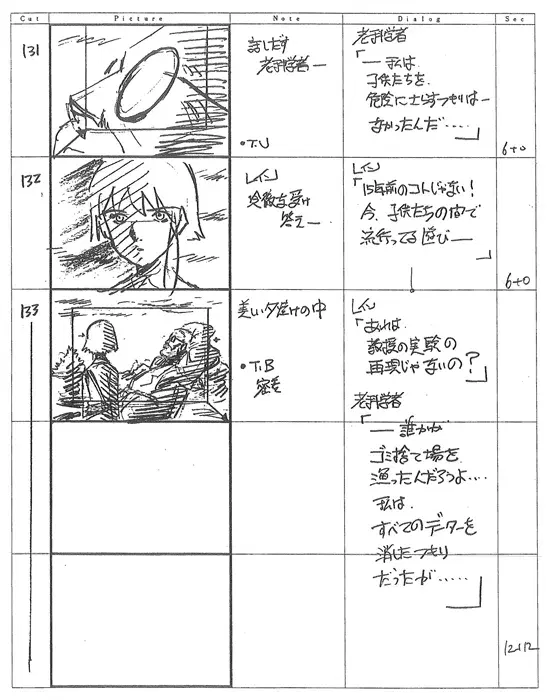 Cut Picture Note Dialog Sec
131
話しだす
老科学者―
・T.U
老科学者
「― 私は
子供たちを、
危険にさらすつもりは―
なかったんだ……」
6+0
132
レイン
冷徹な受け
答え―
レイン
「15年前のコトじゃない！
今、子供たちの間で
流行ってる遊び―」
6+0
133
美しい夕焼けの中
・T.B
密着
レイン
「あれは、
教授の実験の
再現じゃないの？」
老科学者
「― 誰かが
ゴミ捨て場を
漁ったんだろうよ…
私は、
すべてのデーターを
消したつもり
だったが……」
12+12